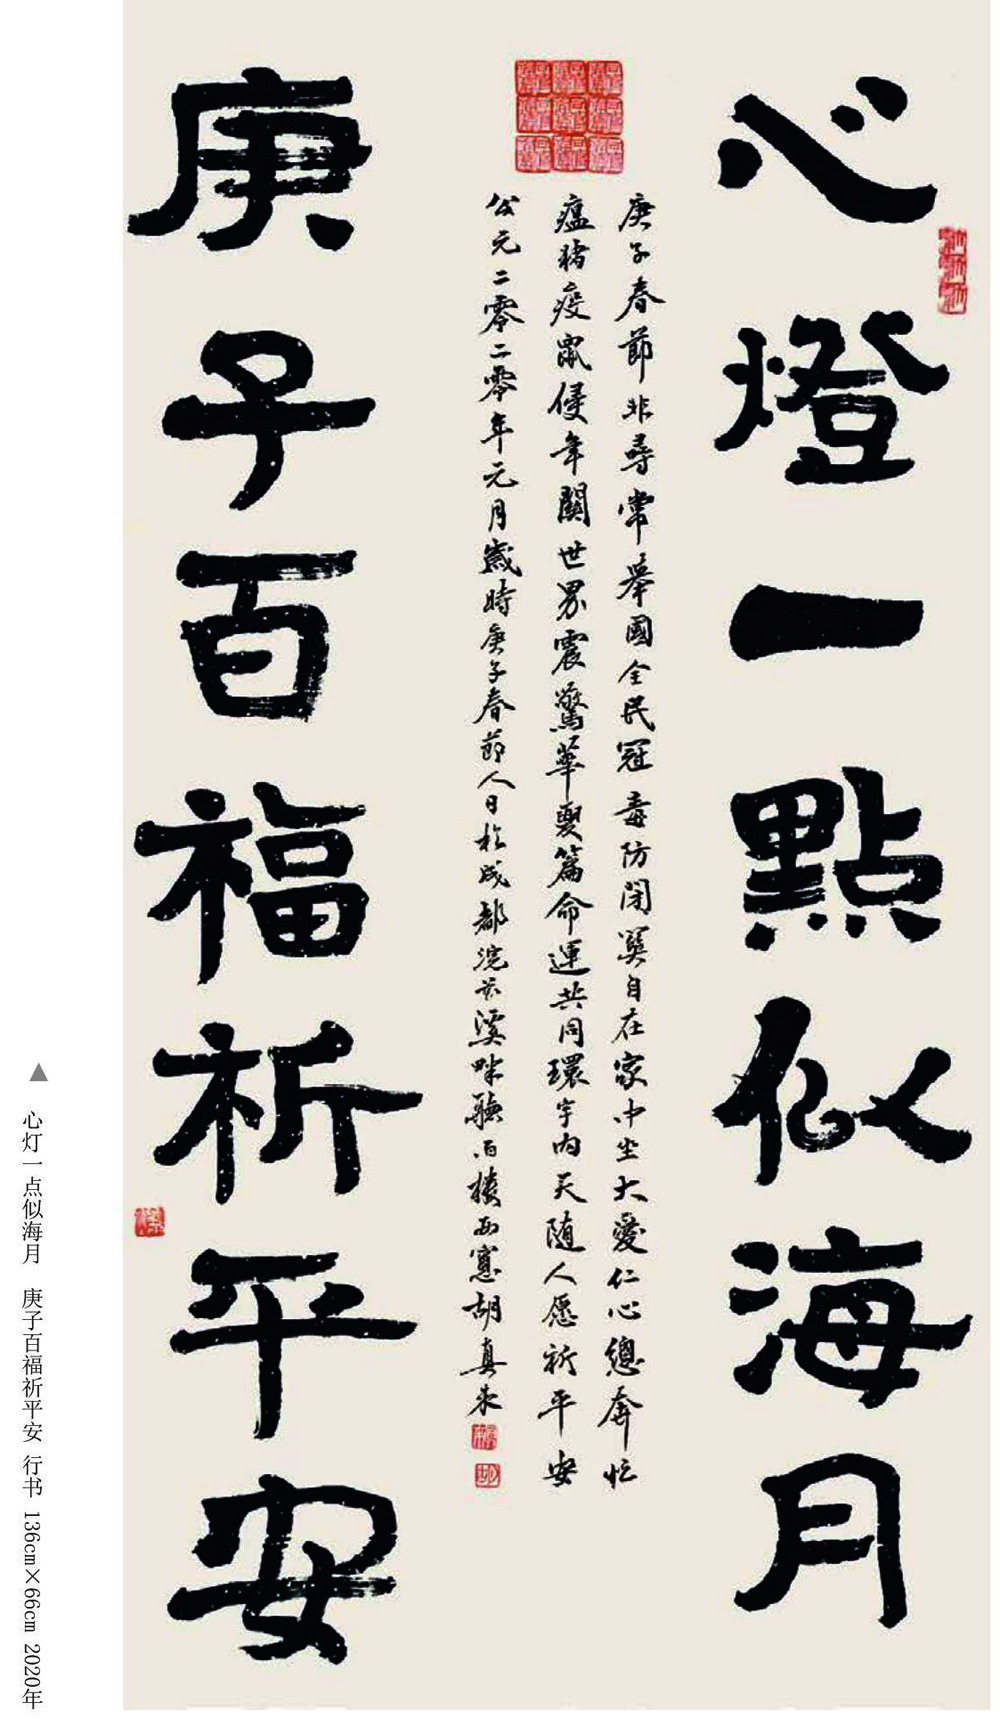 心燈一點似海月
庚子春節非尋常舉國全民冠毒防閉關自在家中坐大愛仁心總奔忙
瘟猪疫鼠侵年關世界震驚華夏篇命運共同環宇內天随人愿祈平安
公元二零二零年元月歲時庚子春節人日於成都浣花溪畔聽雨樓西窗胡真來
庚子百福祈平安
▲ 心灯一点似海月 庚子百福祈平安 行书 136cm×66cm 2020年